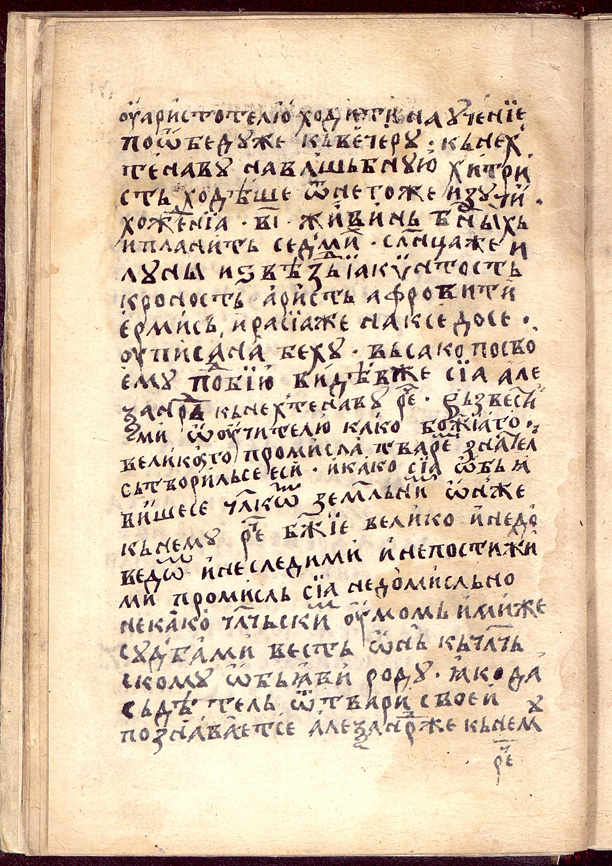 ѹаристотелю ходити на ученїе
поѡбедуже къвечеру · кънех̾
тенаву навлъшьбную хитри
сть ходѣше ѿнегоже изучи
хоженїа · ві · живинь бн҃ыхь
ипланить седми · слн҃цаже и
луны извѣзьїа
кроность аристь афровити
ермись, ирасїаже накседосе ·
ѹписана беху · всако посво
ему побїю видѣвже сїа але
ѯанрь кьнех̾тенаву рⷱ҇е · възвести
ми ѡѹчителю како божїаго
великого промисла тварⷨ знатель
сьтворильсе еси · икако сїа ѡбья
више се чл҃кѡ земльни ѡнже
кьнему рⷱ҇е бж҃їе велико инедо
ведѡ инеследими инепостижи
ми промисль сїа недомисльно
некако чл҃чьски ѹмомь имиже
судбами весть ѡнь кьчл҃чь
скому ѡбьяви роду · якода
сьдѣтель ѿтвари своей
познаваетсе алеѯанⷣрже кьнему
рⷱ҇е